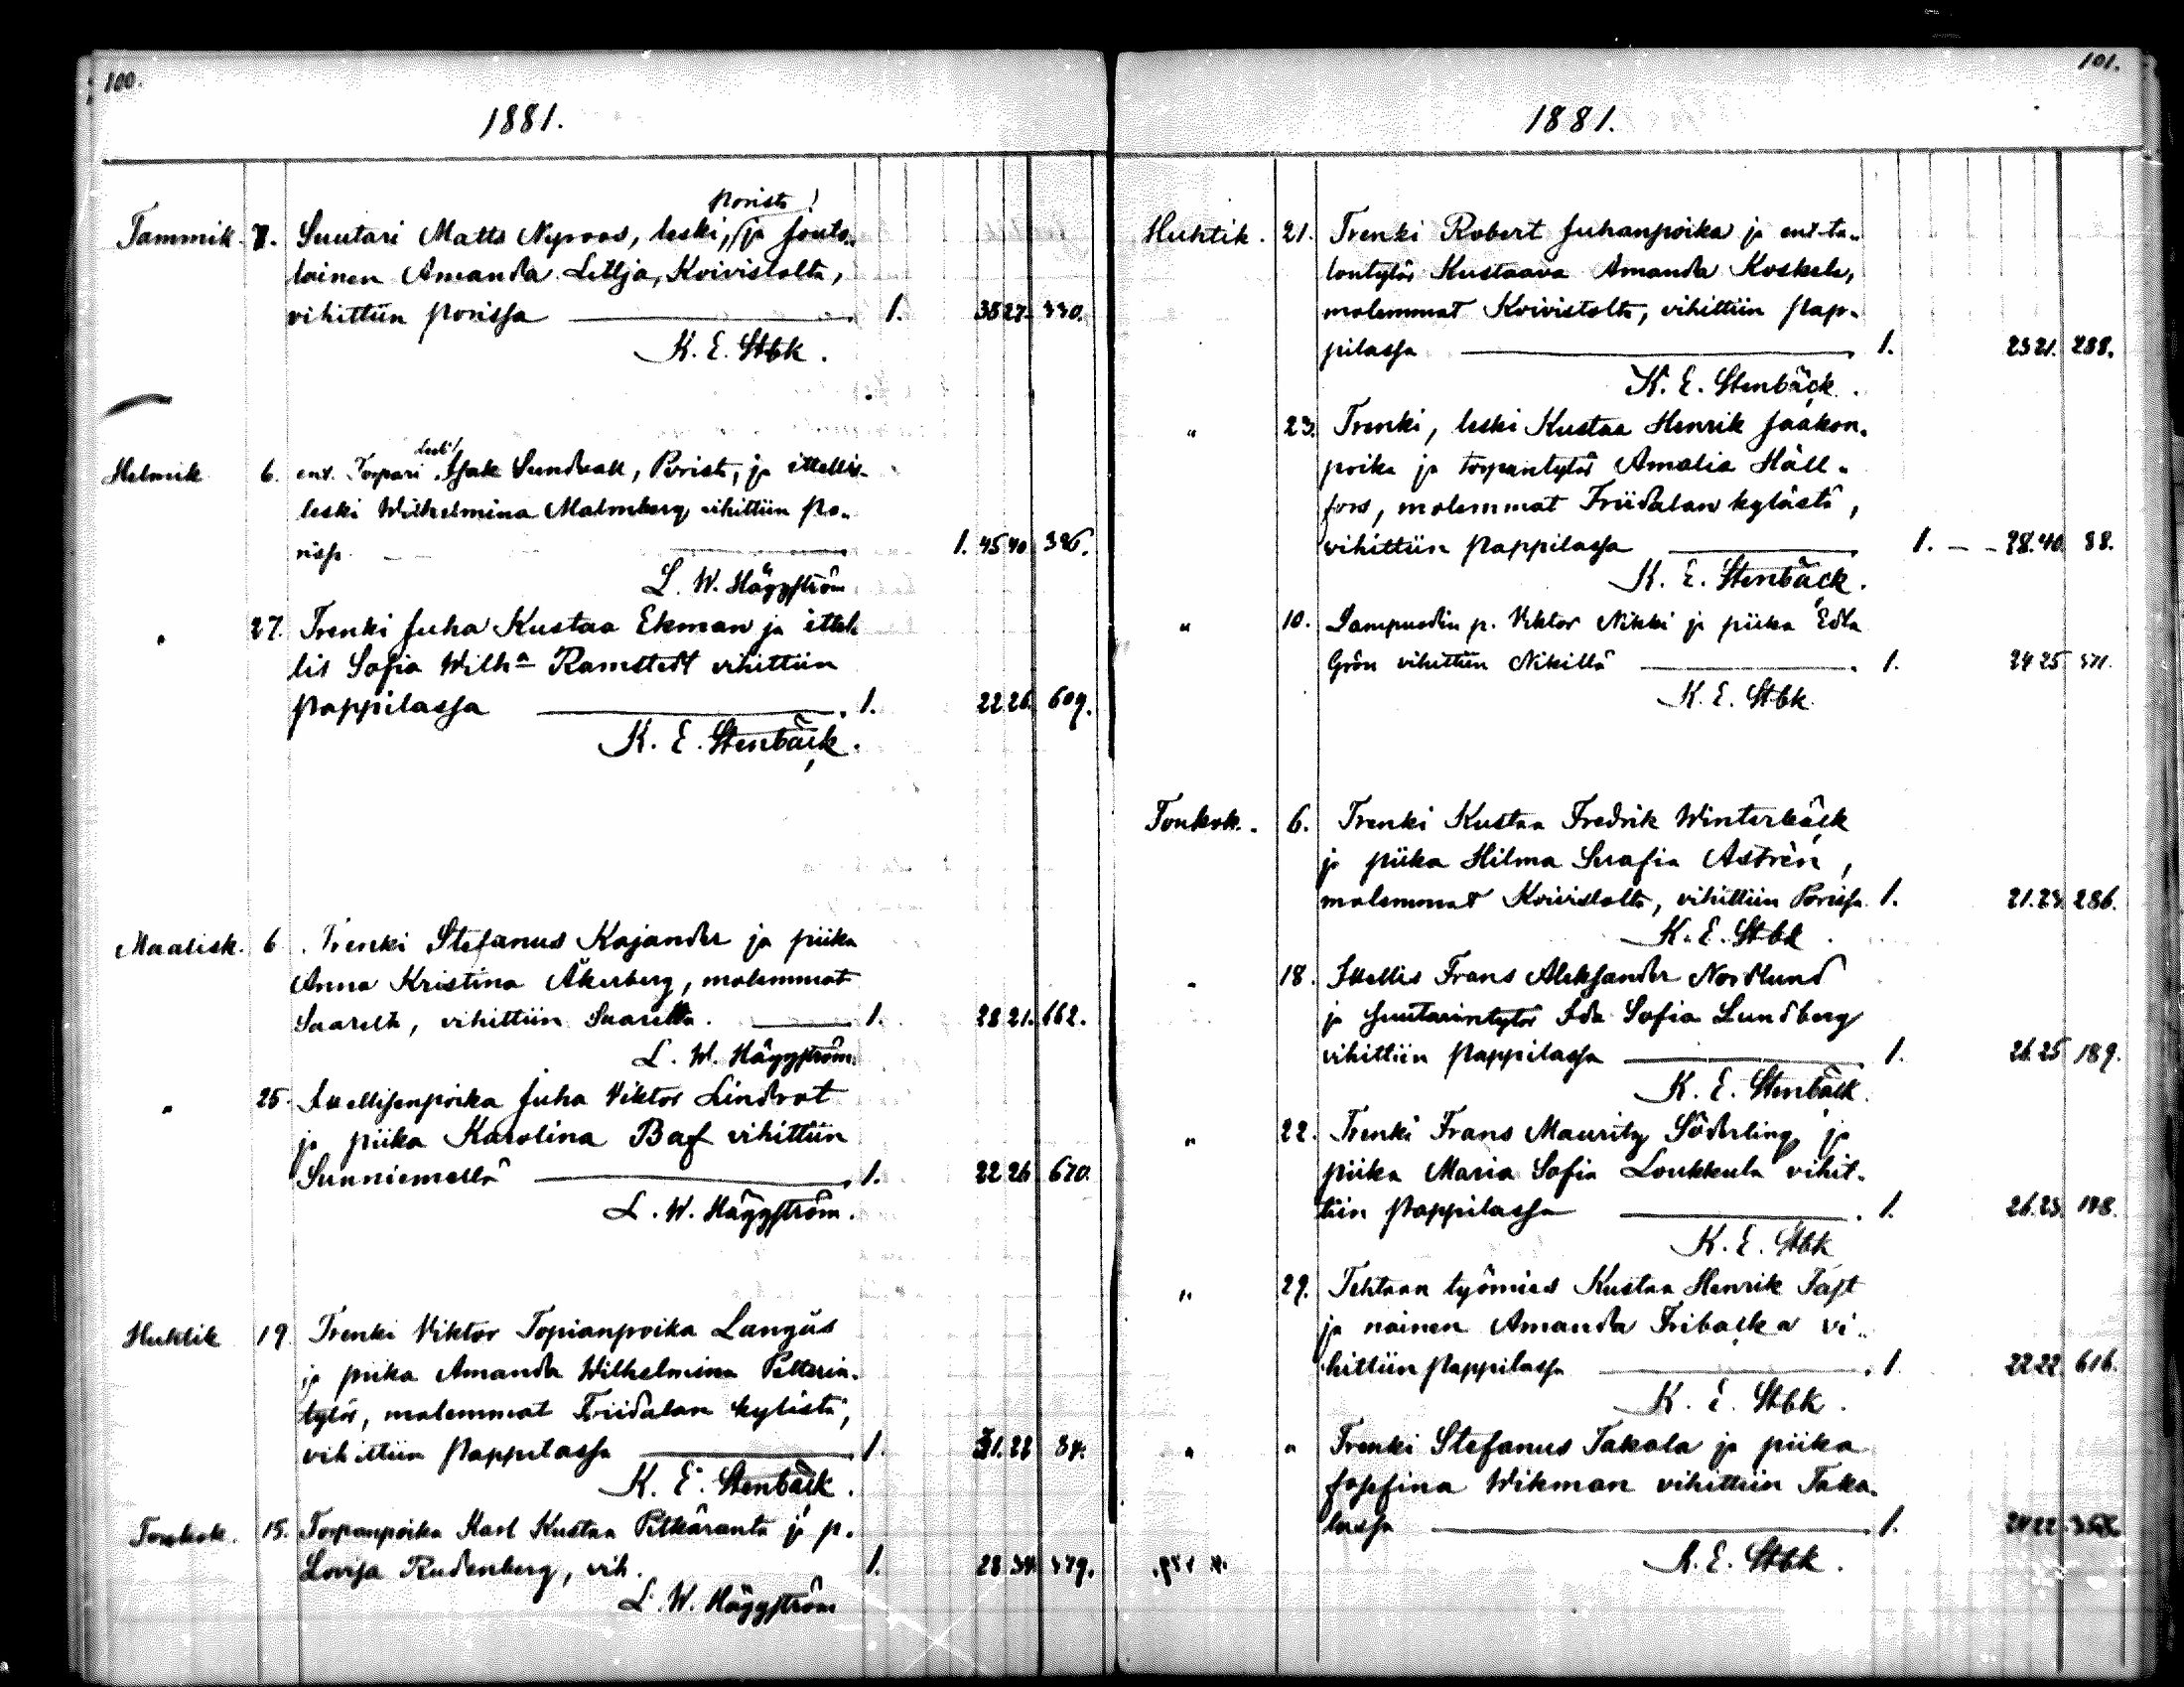 100.
1881.
Porista!
Tammik. 7. Suutari Matts Nyroos, leski, ja jouto-
lainen Amanda Lillja, Koivistolta,
vihittiin Porissa 1. 35 27. 330.
K. E. Stbk.
leski
Helmik 6. ent. Torpari Isak Sundvall, Porista, ja ittellis-
leski Wilhelmina Malmberg vihittiin Po-
rissa 1. 45 40 326.
L. W. Häggström
" 27. Trenki Juha Kustaa Ekman ja ittel-
lis Sofia Wilhª Ramstedt vihittiin
Pappilassa 1. 22 26. 609.
K. E. Stenbäck.
Maalisk. 6. Trenki Stefanus Kajander ja piika
Anna Kristina Åkerberg, molemmat
Saarelta, vihittiin Saarella. 1. 28 21. 662.
L. W. Häggström.
" 25. Ittellisenpoika Juha Viktor Lindrot
ja piika Karolina Baf vihittiin
Sunniemellä 1. 22 26 670.
L. W. Häggström.
Huhtik 19. Trenki Viktor Topianpoika Langús
ja piika Amanda Wilhelmina Petterin-
tytär, molemmat Friidalan kylästä,
vihittiin Pappilassa 1. 31. 22 84.
K. E. Stenbäck.
Toukok. 15. Torpanpoika Karl Kustaa Pitkäranta ja p.
Lovisa Rudenberg, vih. 1. 28 34. 379.
L. W. Häggström
101.
1881.
Huhtik. 21. Trenki Robert Juhanpoika ja ent. ta-
lontytär Kustaava Amanda Koskela,
molemmat Koivistolta, vihittiin Pap-
pilassa 1. 23 21. 288.
K. E. Stenbäck.
" 23. Trenki, leski Kustaa Henrik Jaakon-
poika ja torpantytär Amalia Häll-
fors, molemmat Friidalan kylästä,
vihittiin Pappilassa 1. 28. 40. 88.
K. E. Stenbäck.
" 10. Lampuodin p. Viktor Nikki ja piika Edla
Grön vihittiin Nikillä 1. 24 25 371.
K. E. Stbk
Toukok. 6. Trenki Kustaa Fredrik Winterbäck
ja piika Hilma Serafia Astrén,
molemmat Koivistolta, vihittiin Porissa 1. 21. 23. 286.
K. E. Stbk
" 18. Ittellis Frans Aleksander Nordlund
ja suutarintytär Ida Sofia Lundberg
vihittiin Pappilassa 1. 26. 25 189.
K. E. Stenbäck.
" 22. Trenki Frans Mauritz Söderling ja
piika Maria Sofia Loukkula vihit-
tiin Pappilassa 1. 26. 23.
K. E. Stbk
" 29. Tehtaan työmies Kustaa Henrik Taft
ja nainen Amanda Fribacka vi-
hittiin Pappilassa 1. 22 22. 616.
K. E. Stbk.
" " Trenki Stefanus Takala ja piika
Josefina Wikman vihittiin Taka-
lassa 1. 22.
K. E. Stbk.